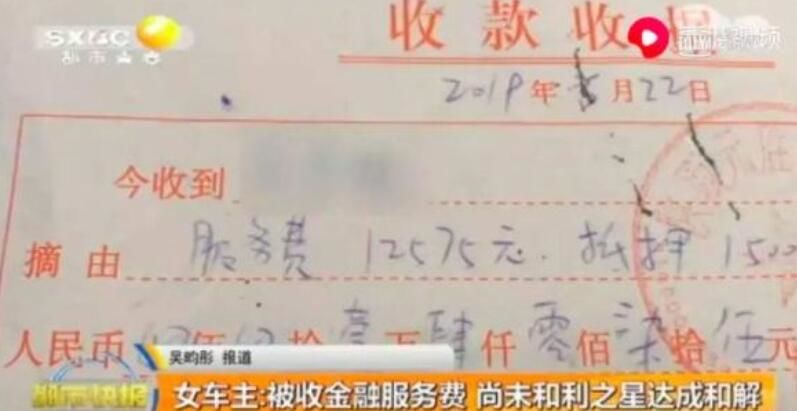 SXBC
都市青春
收款收据
2019年 5月22日
今收到
摘由 服务费 12575元. 抵押 1500
人民币 拾 壹万肆仟零佰柒拾伍元
吴昀彤 报道
都市快报
女车主:被收金融服务费 尚未和利之星达成和解